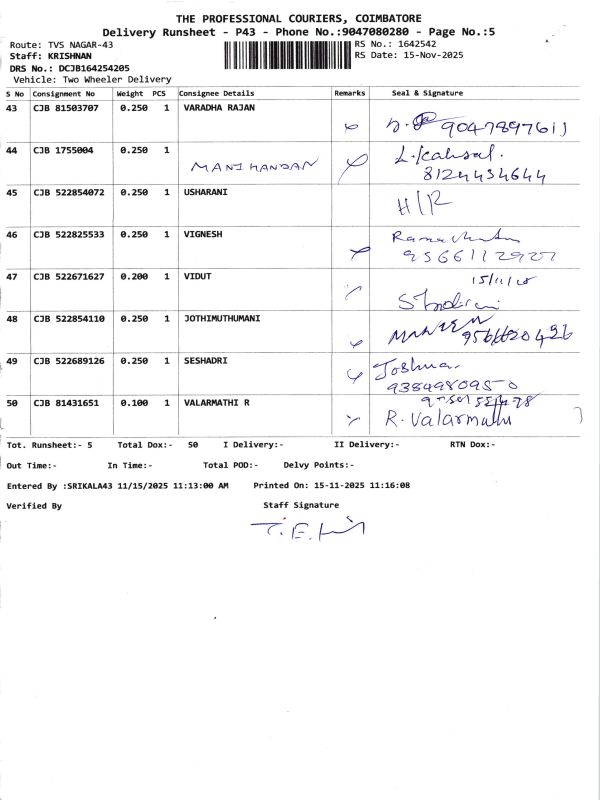 THE PROFESSIONAL COURIERS, COIMBATORE
Delivery Runsheet - P43 - Phone No.:9047080280 - Page No.:5
Route: TVS NAGAR-43 RS No.: 1642542
Staff: KRISHNAN RS Date: 15-Nov-2025
DRS No.: DCJB164254205
Vehicle: Two Wheeler Delivery
S No Consignment No Weight PCS Consignee Details Remarks Seal & Signature
43 CJB 81503707 0.250 1 VARADHA RAJAN
9047897611
44 CJB 1755004 0.250 1
MANIKANDAN
8124434644
45 CJB 522854072 0.250 1 USHARANI
H/R
46 CJB 522825533 0.250 1 VIGNESH
47 CJB 522671627 0.200 1 VIDUT
15/11/25
48 CJB 522854110 0.250 1 JOTHIMUTHUMANI
49 CJB 522689126 0.250 1 SESHADRI
Joshua.
9384980950
50 CJB 81431651 0.100 1 VALARMATHI R
R. Valarmathi
Tot. Runsheet:- 5 Total Dox:- 50 I Delivery:- II Delivery:- RTN Dox:-
Out Time:- In Time:- Total POD:- Delvy Points:-
Entered By :SRIKALA43 11/15/2025 11:13:00 AM Printed On: 15-11-2025 11:16:08
Verified By Staff Signature